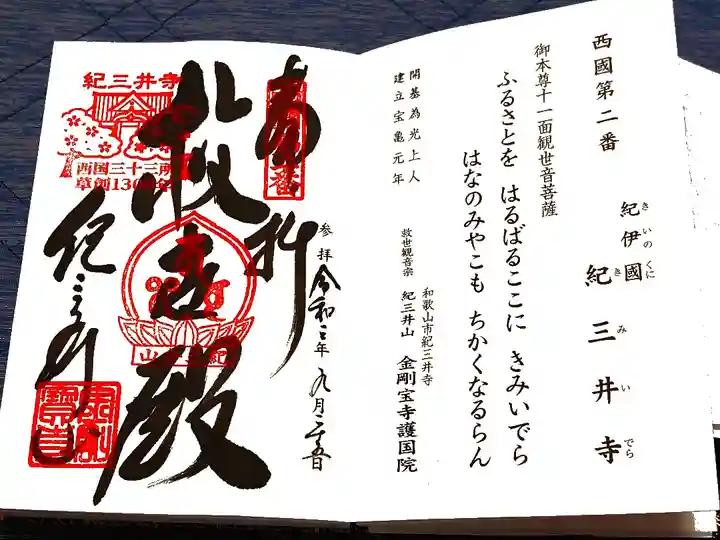 西國第二番
紀伊國 紀三井寺
きいのくに きみいでら
御本尊十一面観世音菩薩
ふるさとを はるばるここに きみいでら
はなのみやこも ちかくなるらん
開基為光上人
建立宝亀元年
和歌山市紀三井寺
救世観音宗 紀三井山 金剛宝寺護国院
参拝 令和三年九月二十五日
奉拝
救世殿
紀三井寺
紀三井寺
西国三十三所
草創1300年